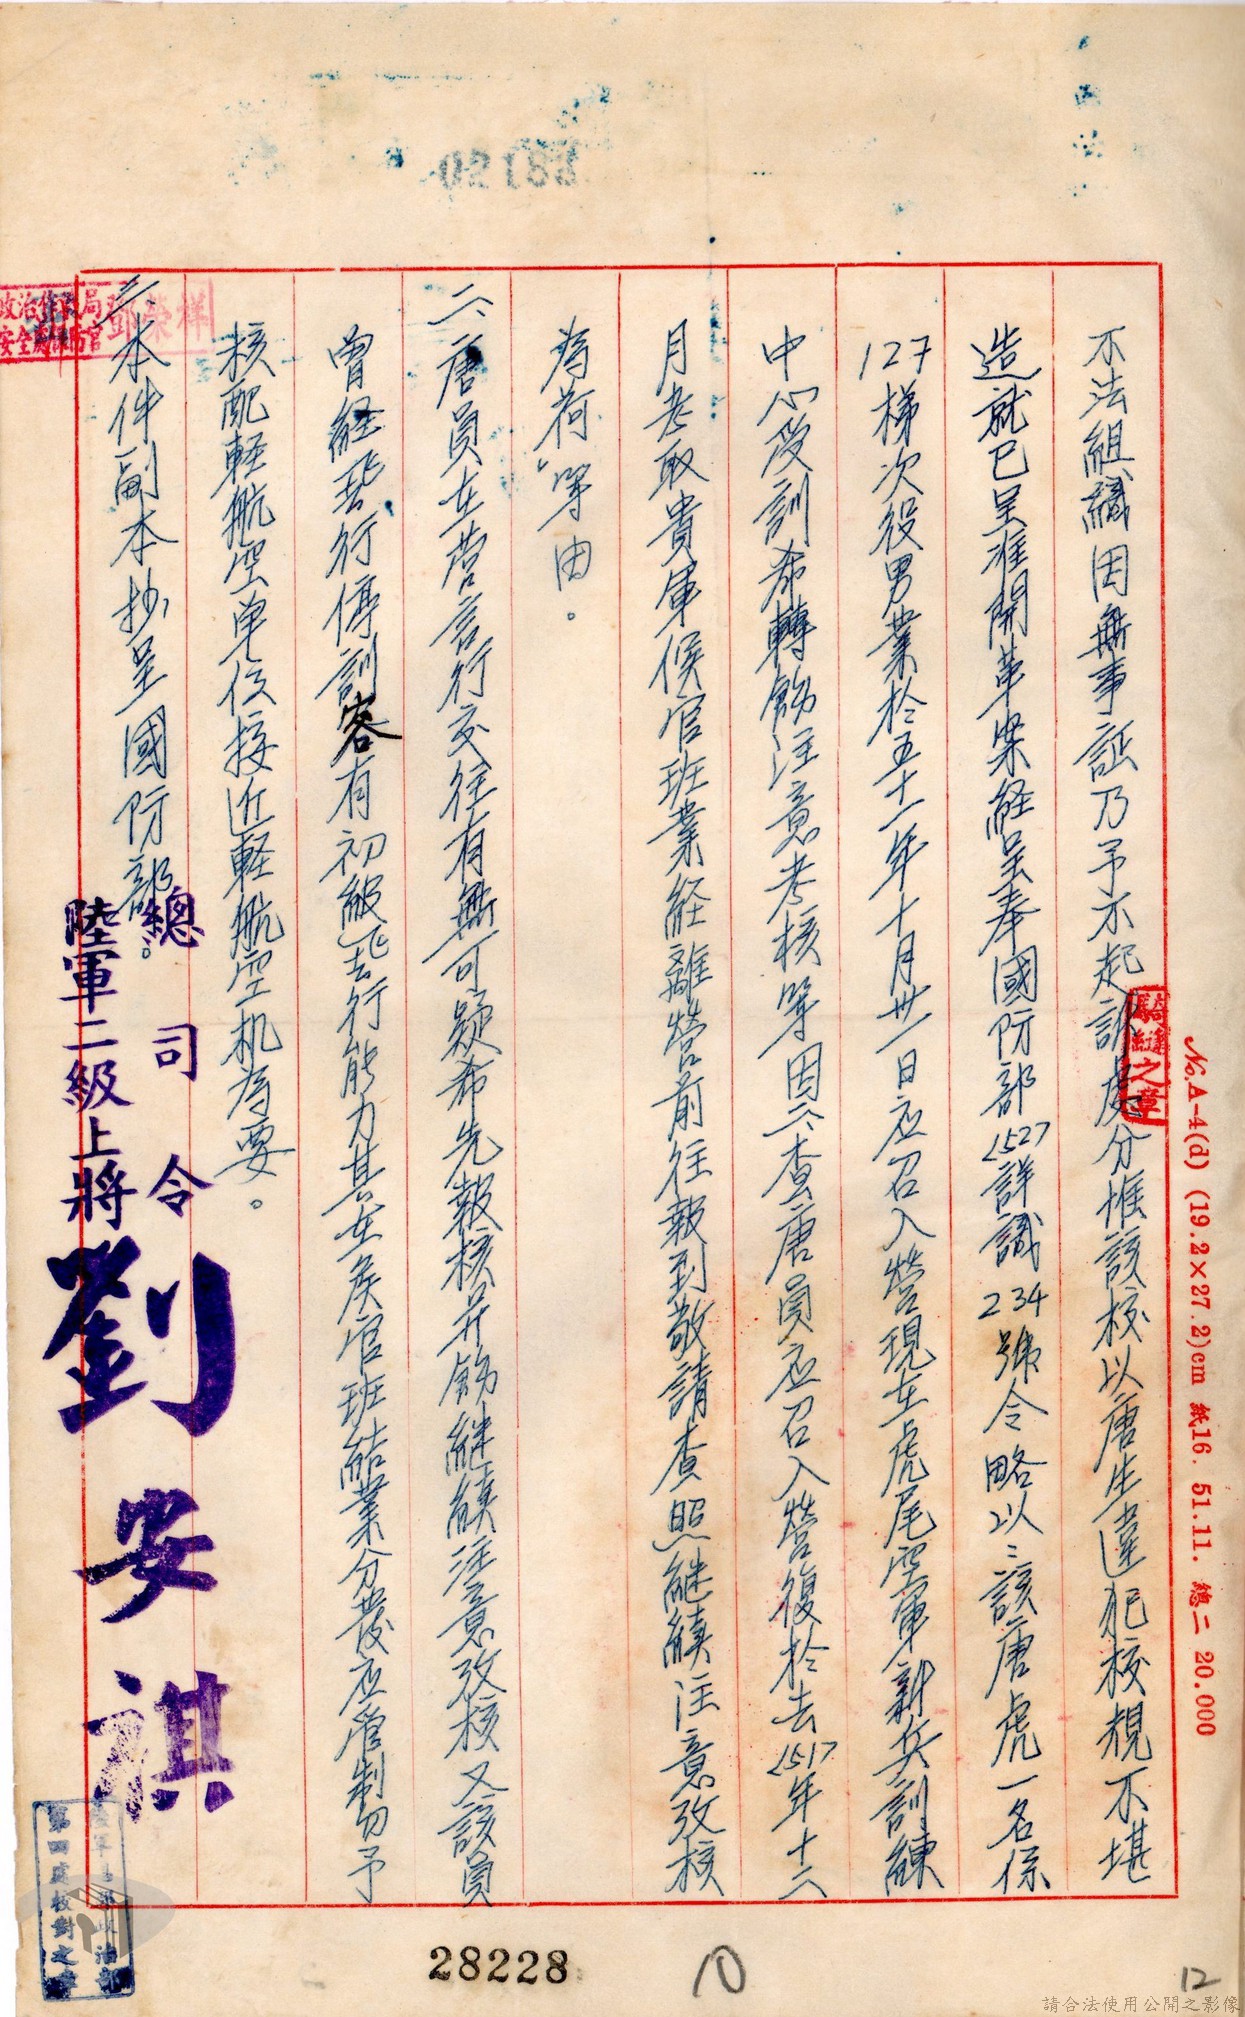 不法組織因無事証乃予不起訴處分惟該校以唐生違犯校規不堪
造就已呈准開革案経呈奉國防部(51)27詳識234號令略以：該唐虎一名係
127梯次役男業於五十一年十月卅一日应召入營現在虎尾空軍新兵訓練
中心受訓希轉飭注意考核等因二、查唐員应召入營復於去(51)年十二
月考取貴軍候官班業経離營前往報到敬請查照継續注意改核
為荷」等由。
二、唐員在营言行交往有無可疑希先報核并飭継續注意改核又該員
曾経飛行停訓容有初級飛行能力其在候官班結業分發应管制勿予
核配軽航空単位接近軽航空机為要。
三、本件副本抄呈國防部。
總司令
陸軍二級上將 劉安祺
騎縫之章
№.A-4(d) (19.2×27.2)cm 紙16. 51.11. 總二 20.000
鄧榮祥
第四處校對之章
28228
10
12
請合法使用公開之影像